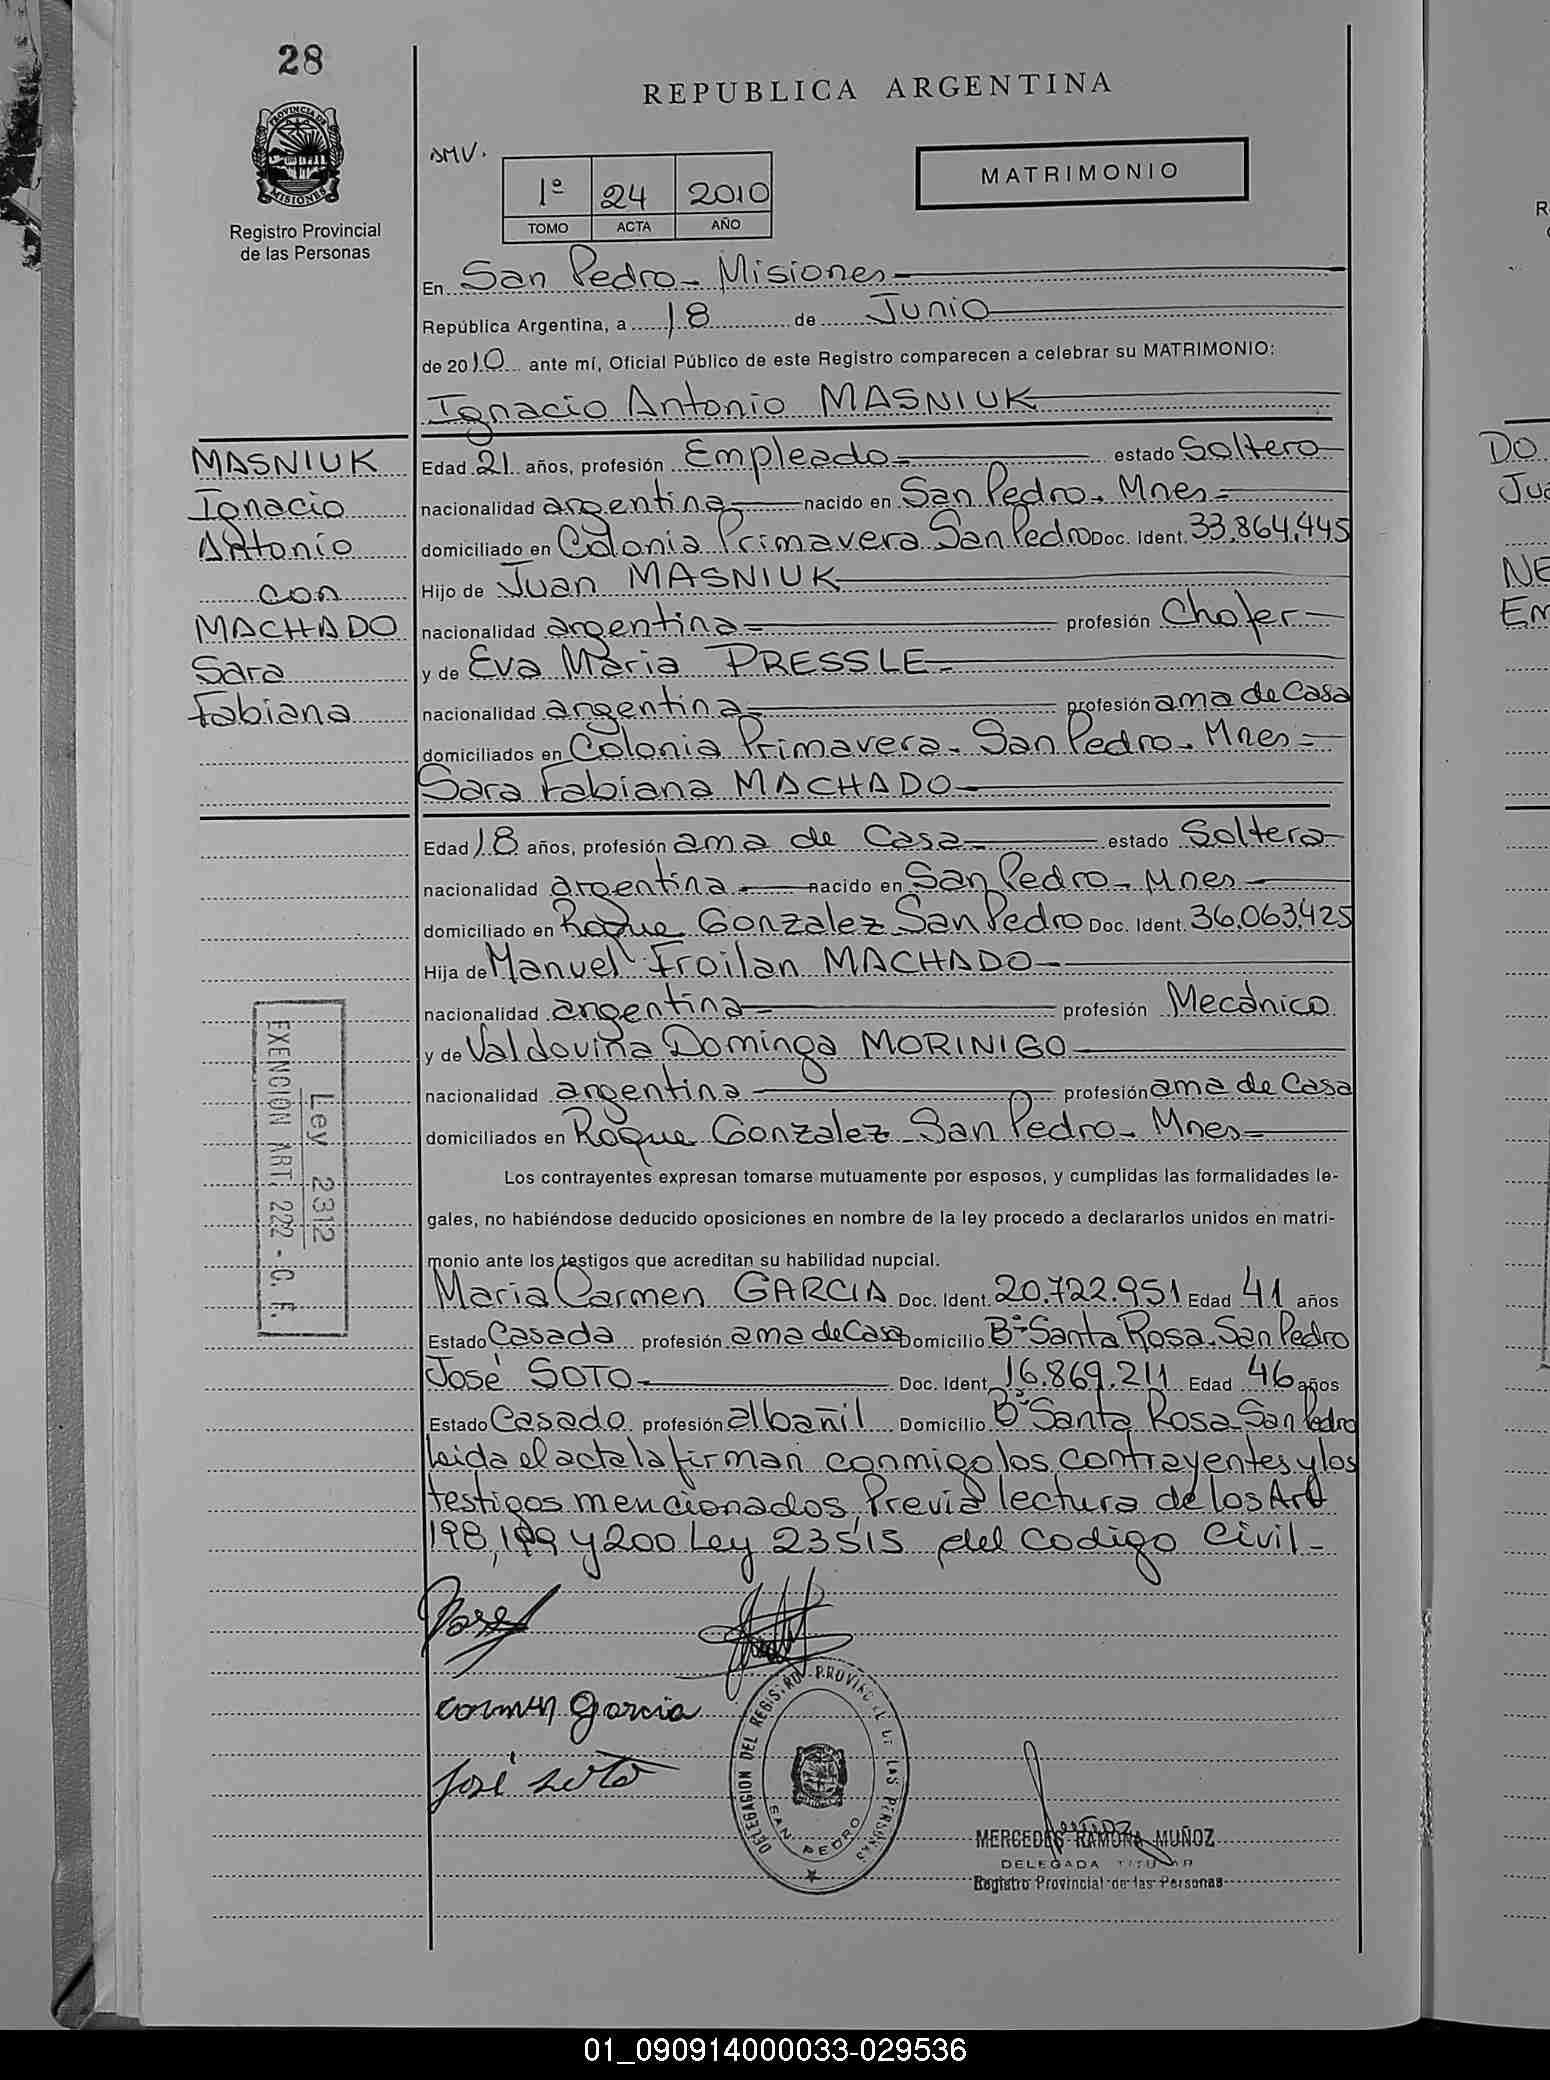 28
REPUBLICA ARGENTINA
PROVINCIA DE
MISIONES
Registro Provincial
de las Personas
SMV.
1º 24 2010
TOMO ACTA AÑO
MATRIMONIO
En San Pedro - Misiones
República Argentina, a 18 de Junio
de 2010 ante mí, Oficial Público de este Registro comparecen a celebrar su MATRIMONIO:
Ignacio Antonio MASNIUK
MASNIUK
Ignacio
Antonio
con
MACHADO
Sara
Fabiana
Edad 21 años, profesión Empleado estado Soltero
nacionalidad argentina nacido en San Pedro - Mnes
domiciliado en Colonia Primavera San Pedro Doc. Ident. 33.864.445
Hijo de Juan MASNIUK
nacionalidad argentina profesión Chofer
y de Eva Maria PRESSLE
nacionalidad argentina profesión ama de Casa
domiciliados en Colonia Primavera - San Pedro - Mnes
Sara Fabiana MACHADO
Edad 18 años, profesión ama de Casa estado Soltera
nacionalidad argentina nacido en San Pedro - Mnes
domiciliado en Roque Gonzalez San Pedro Doc. Ident. 36.063.425
Hija de Manuel Froilan MACHADO
nacionalidad argentina profesión Mecánico
y de Valdovina Dominga MORINIGO
nacionalidad argentina profesión ama de Casa
domiciliados en Roque Gonzalez - San Pedro - Mnes
Ley 2312
EXENCION ART. 222 - C. F.
Los contrayentes expresan tomarse mutuamente por esposos, y cumplidas las formalidades le-
gales, no habiéndose deducido oposiciones en nombre de la ley procedo a declararlos unidos en matri-
monio ante los testigos que acreditan su habilidad nupcial.
Maria Carmen GARCIA Doc. Ident. 20.722.951 Edad 41 años
Estado Casada profesión ama de Casa Domicilio Bº Santa Rosa - San Pedro
José SOTO Doc. Ident. 16.869.211 Edad 46 años
Estado Casado profesión albañil Domicilio Bº Santa Rosa - San Pedro
Leida el acta la firman conmigo los contrayentes y los
testigos mencionados, Previa lectura de los Art
198, 199 y 200 Ley 23515 del Codigo Civil -
Carmen Garcia
José Soto
DELEGACION DEL REGISTRO PROVINCIAL DE LAS PERSONAS
SAN PEDRO
MERCEDES RAMONA MUÑOZ
DELEGADA TITULAR
Registro Provincial de las Personas
DO
Jua
NE
Em
01_090914000033-029536